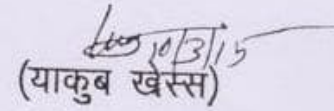 10/3/15
(याकुब खेस्स)